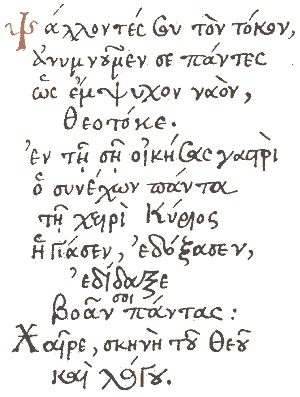 Ψάλλοντές σου τὸν τόκον,
ἀνυμνοῦμεν σε πάντες
ὡς ἔμψυχον ναὸν,
Θεοτόκε.
ἐν τῇ σῇ οἰκήσας γαστρὶ
ὁ συνέχων πάντα
τῇ χειρὶ Κύριος
ἡγίασεν, ἐδόξασεν,
ἐδίδαξε
βοᾶν σοι πάντας:
Χαῖρε, σκηνὴ τοῦ Θεοῦ
καὶ Λόγου.